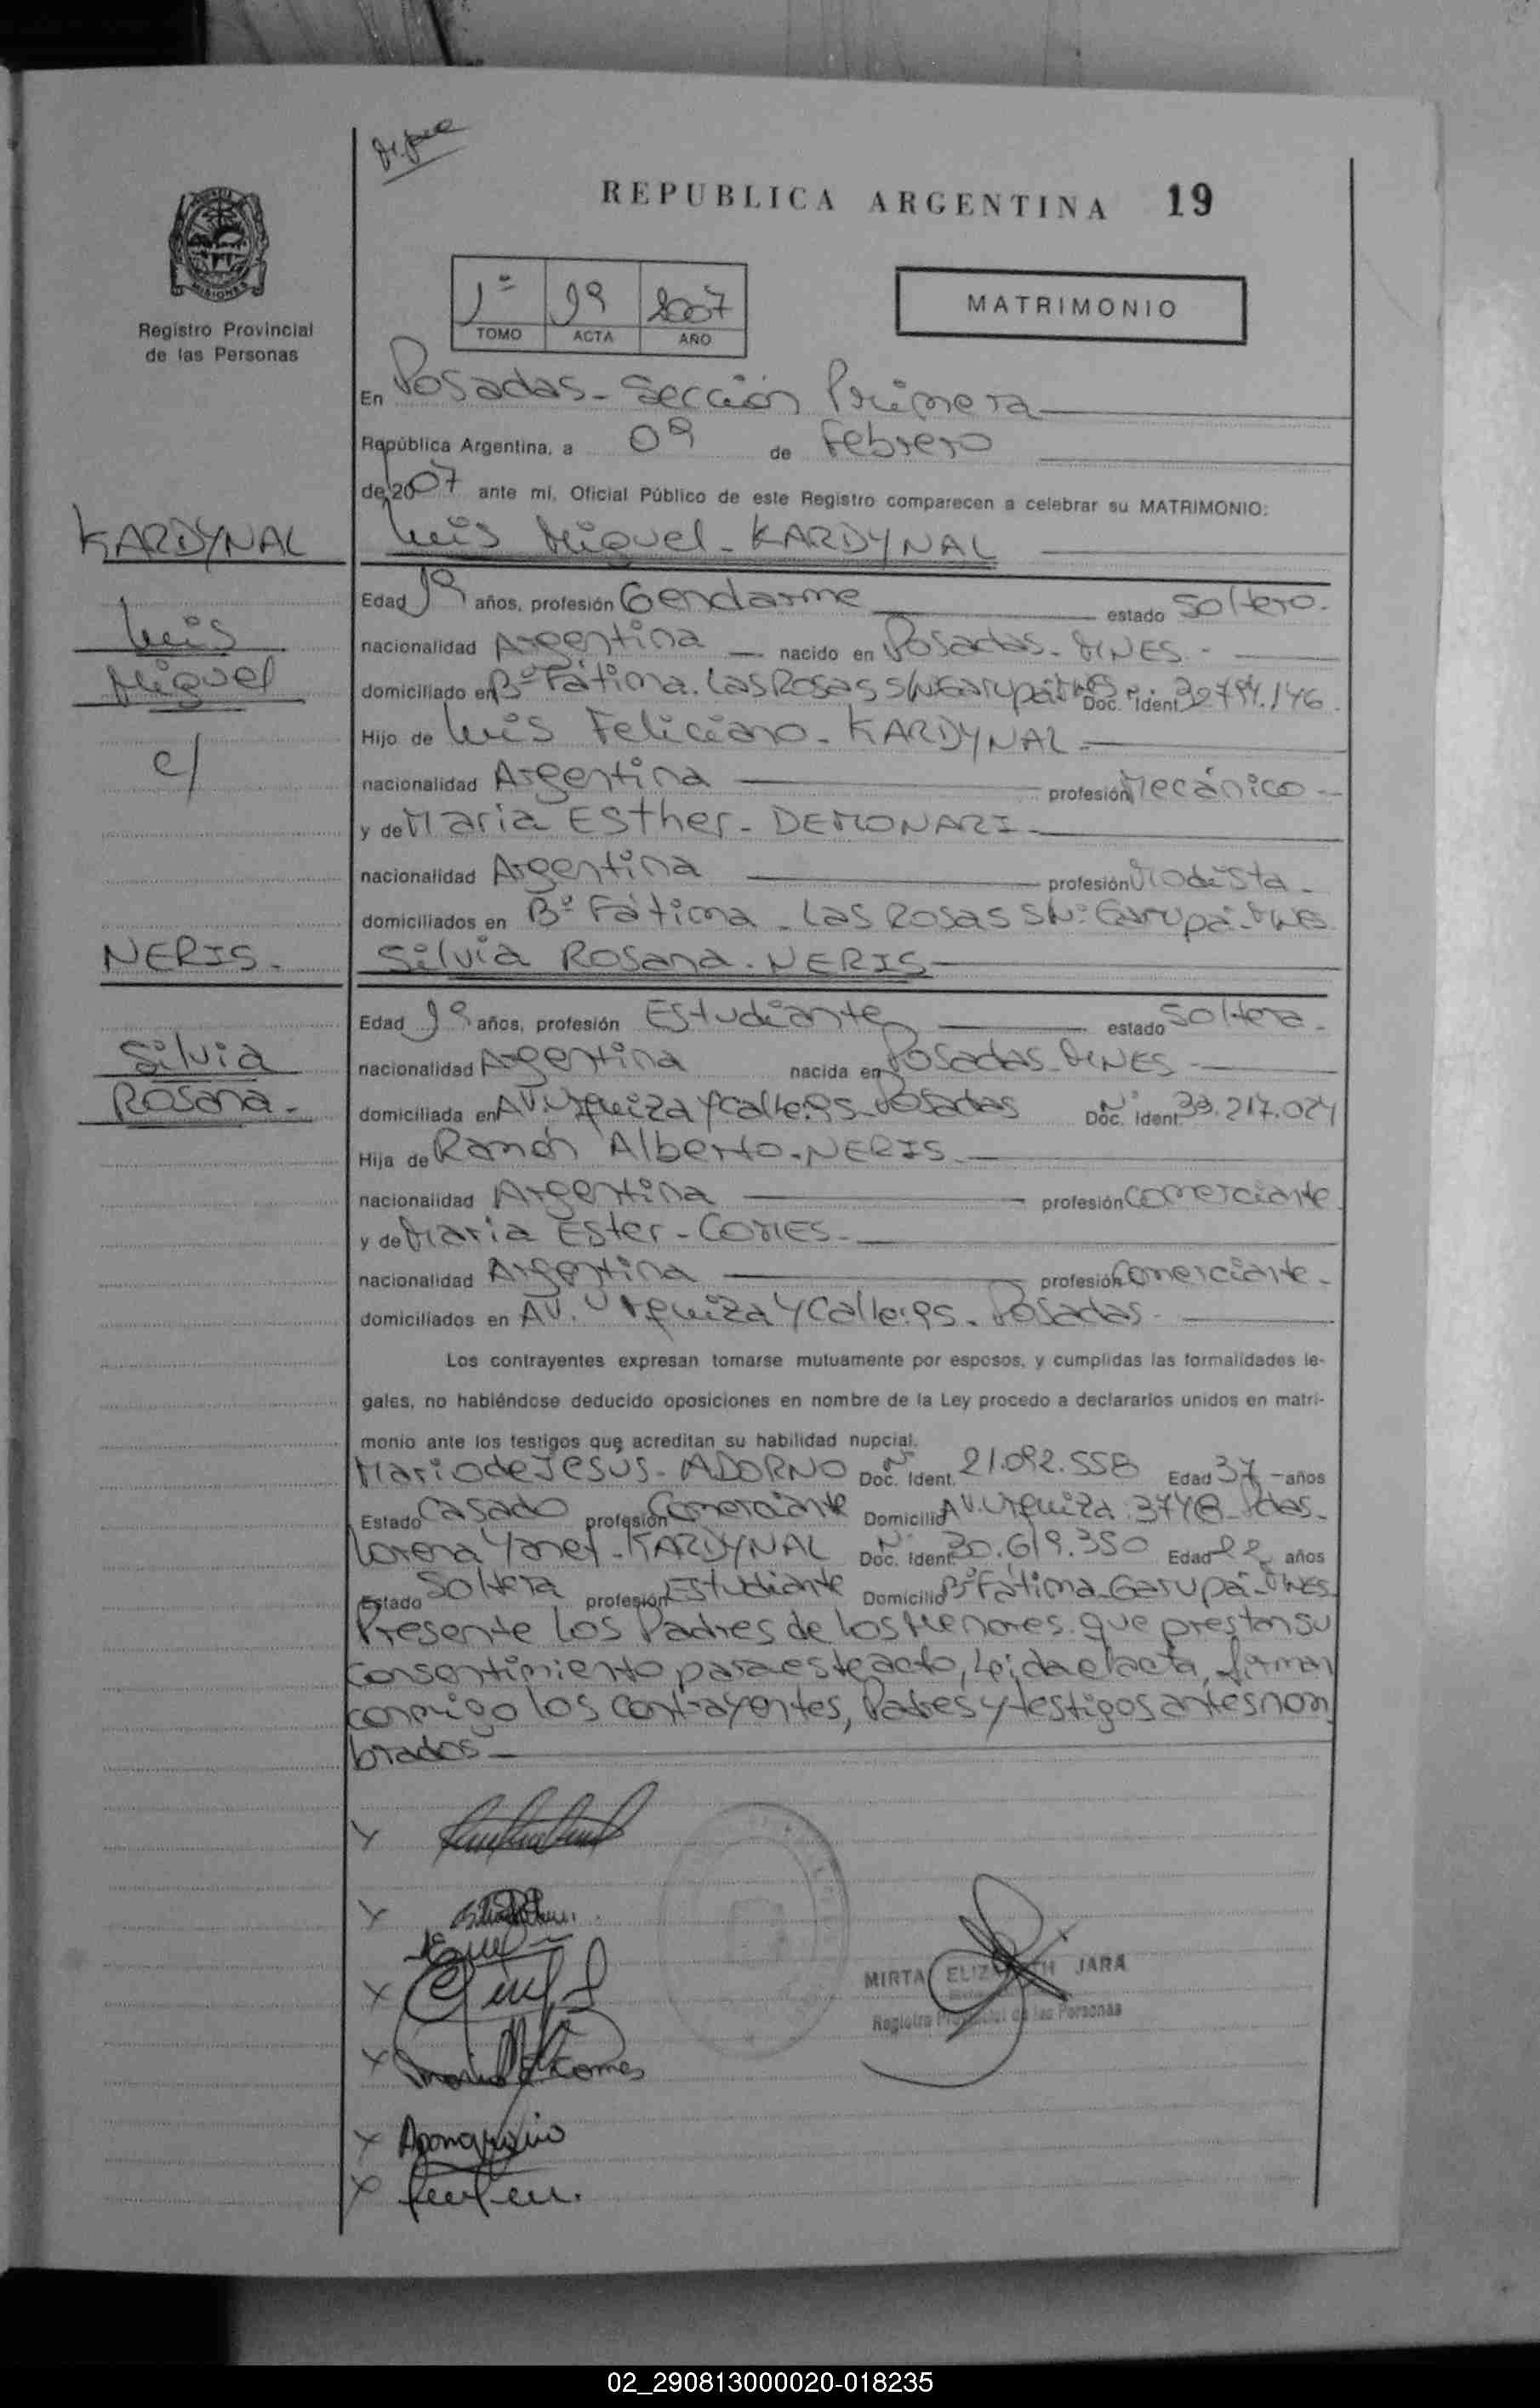 REPUBLICA ARGENTINA 19
MISIONES
Registro Provincial
de las Personas
1º 19 2007
TOMO ACTA AÑO
MATRIMONIO
En Posadas - Sección Primera
República Argentina, a 09 de Febrero
de 2007 ante mí, Oficial Público de este Registro comparecen a celebrar su MATRIMONIO:
KARDYNAL
Luis Miguel - KARDYNAL
Edad 19 años, profesión Gendarme estado Soltero.
Luis
nacionalidad Argentina nacido en Posadas - MNES -
Miguel
domiciliado en Bº Fátima. Las Rosas S/Nº Garupá Doc. Ident. 32.794.146.
c/
Hijo de Luis Feliciano - KARDYNAL -
nacionalidad Argentina profesión Mecánico -
y de Maria Esther - DEMONARI -
nacionalidad Argentina profesión Modista -
domiciliados en Bº Fátima - Las Rosas S/Nº Garupá - MNES
NERIS -
Silvia Rosana - NERIS
Edad 19 años, profesión Estudiante estado Soltera -
Silvia
nacionalidad Argentina nacida en Posadas - MNES -
Rosana -
domiciliada en AV. Urquiza y Calle: 95 - Posadas Nº Doc. Ident. 33.217.024
Hija de Ramón Alberto - NERIS -
nacionalidad Argentina profesión Comerciante
y de Maria Ester - GOMES -
nacionalidad Argentina profesión Comerciante -
domiciliados en AV. Urquiza y Calle: 95 - Posadas -
Los contrayentes expresan tomarse mutuamente por esposos, y cumplidas las formalidades le-
gales, no habiéndose deducido oposiciones en nombre de la Ley procedo a declararlos unidos en matri-
monio ante los testigos que acreditan su habilidad nupcial.
Mario de Jesús - ADORNO Nº Doc. Ident. 21.092.558 Edad 37 - años
Estado Casado profesión Comerciante Domicilio AV. Urquiza 3748 - Pdas -
Lorena Yanet - KARDYNAL Nº Doc. Ident. 30.619.350 Edad 22 años
Estado Soltera profesión Estudiante Domicilio Bº Fátima - Garupá - MNES
Presente los Padres de los Menores que prestan su
consentimiento para este acto, Leida el acta, firman
conmigo los contrayentes, Padres y testigos antes nom
brados -
MIRTA ELIZABETH JARA
Registro Provincial de las Personas
Gomes
02_290813000020-018235